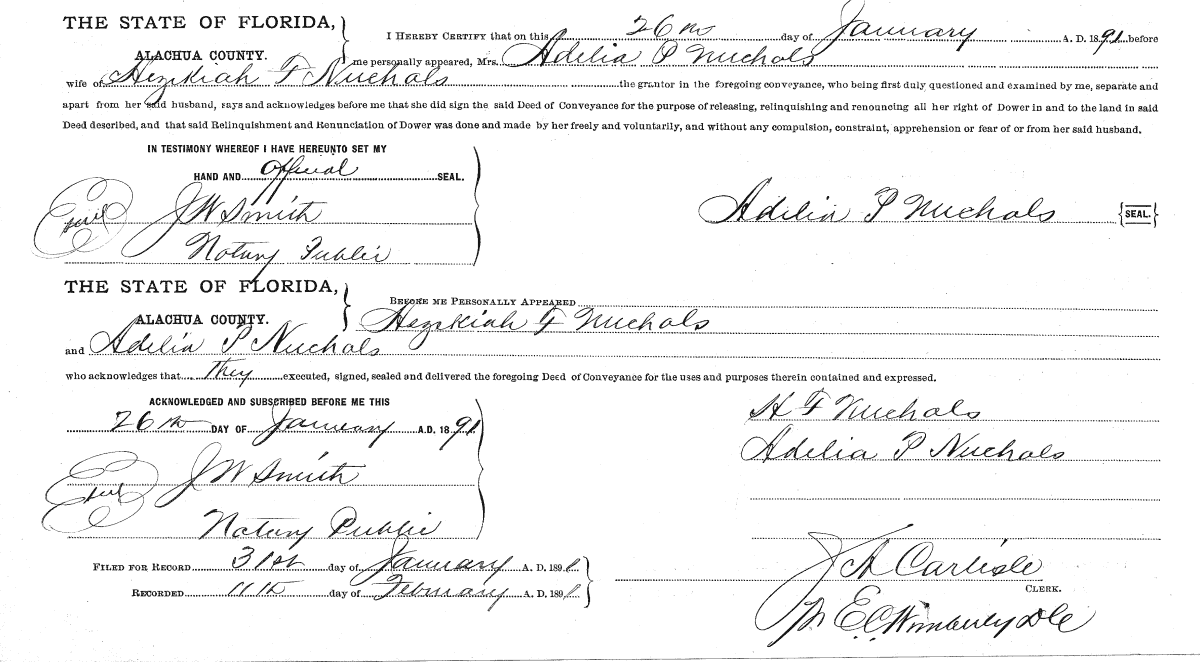 THE STATE OF FLORIDA,
ALACHUA COUNTY.
I HEREBY CERTIFY that on this 26th day of January A. D. 1891 before
me personally appeared, Mrs. Adelia P Nuchals
wife of Hezekiah F Nuchals the grantor in the foregoing conveyance, who being first duly questioned and examined by me, separate and
apart from her said husband, says and acknowledges before me that she did sign the said Deed of Conveyance for the purpose of releasing, relinquishing and renouncing all her right of Dower in and to the land in said
Deed described, and that said Relinquishment and Renunciation of Dower was done and made by her freely and voluntarily, and without any compulsion, constraint, apprehension or fear of or from her said husband.
IN TESTIMONY WHEREOF I HAVE HEREUNTO SET MY
HAND AND official SEAL.
Seal J W Smith
Notary Public
Adelia P Nuchals {SEAL.}
THE STATE OF FLORIDA,
ALACHUA COUNTY.
BEFORE ME PERSONALLY APPEARED
Hezekiah F Nuchals
and Adelia P Nuchals
who acknowledges that they executed, signed, sealed and delivered the foregoing Deed of Conveyance for the uses and purposes therein contained and expressed.
ACKNOWLEDGED AND SUBSCRIBED BEFORE ME THIS
26th DAY OF January A.D. 1891
Seal J W Smith
Notary Public
H F Nuchals
Adelia P Nuchals
FILED FOR RECORD 31st day of January A. D. 1891
RECORDED 11th day of February A. D. 1891
J A Carlisle
CLERK.
E. C. Wimberly DC